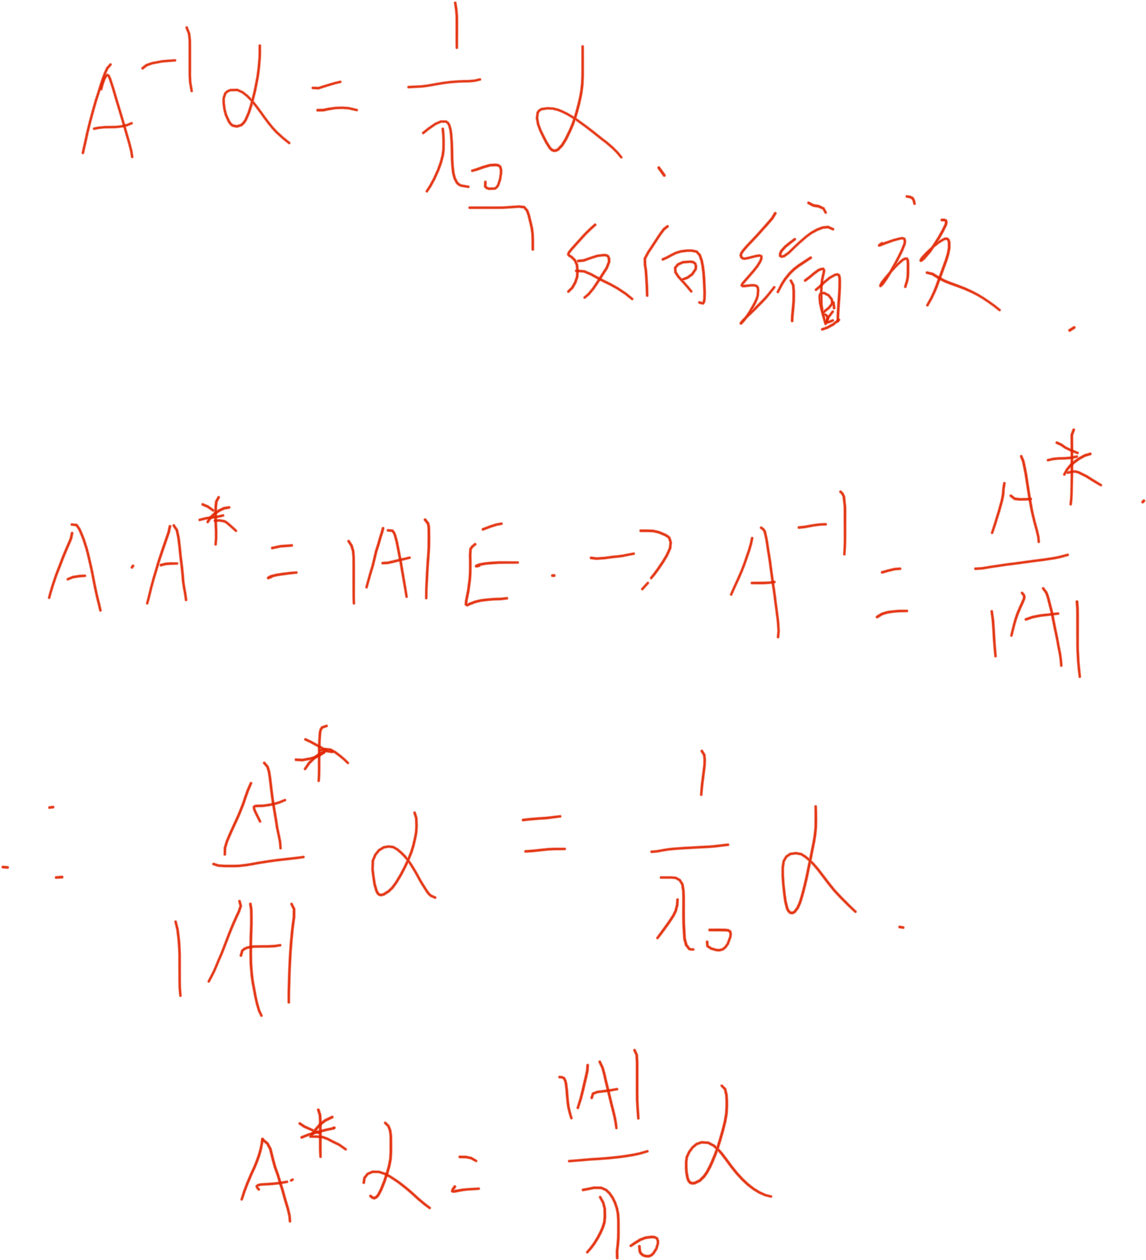 A⁻¹α = 1/λ₀ α.
反向缩放.
A·A* = |A|E. → A⁻¹ = A*/|A|.
∴ A*/|A| α = 1/λ₀ α.
A*α = |A|/λ₀ α